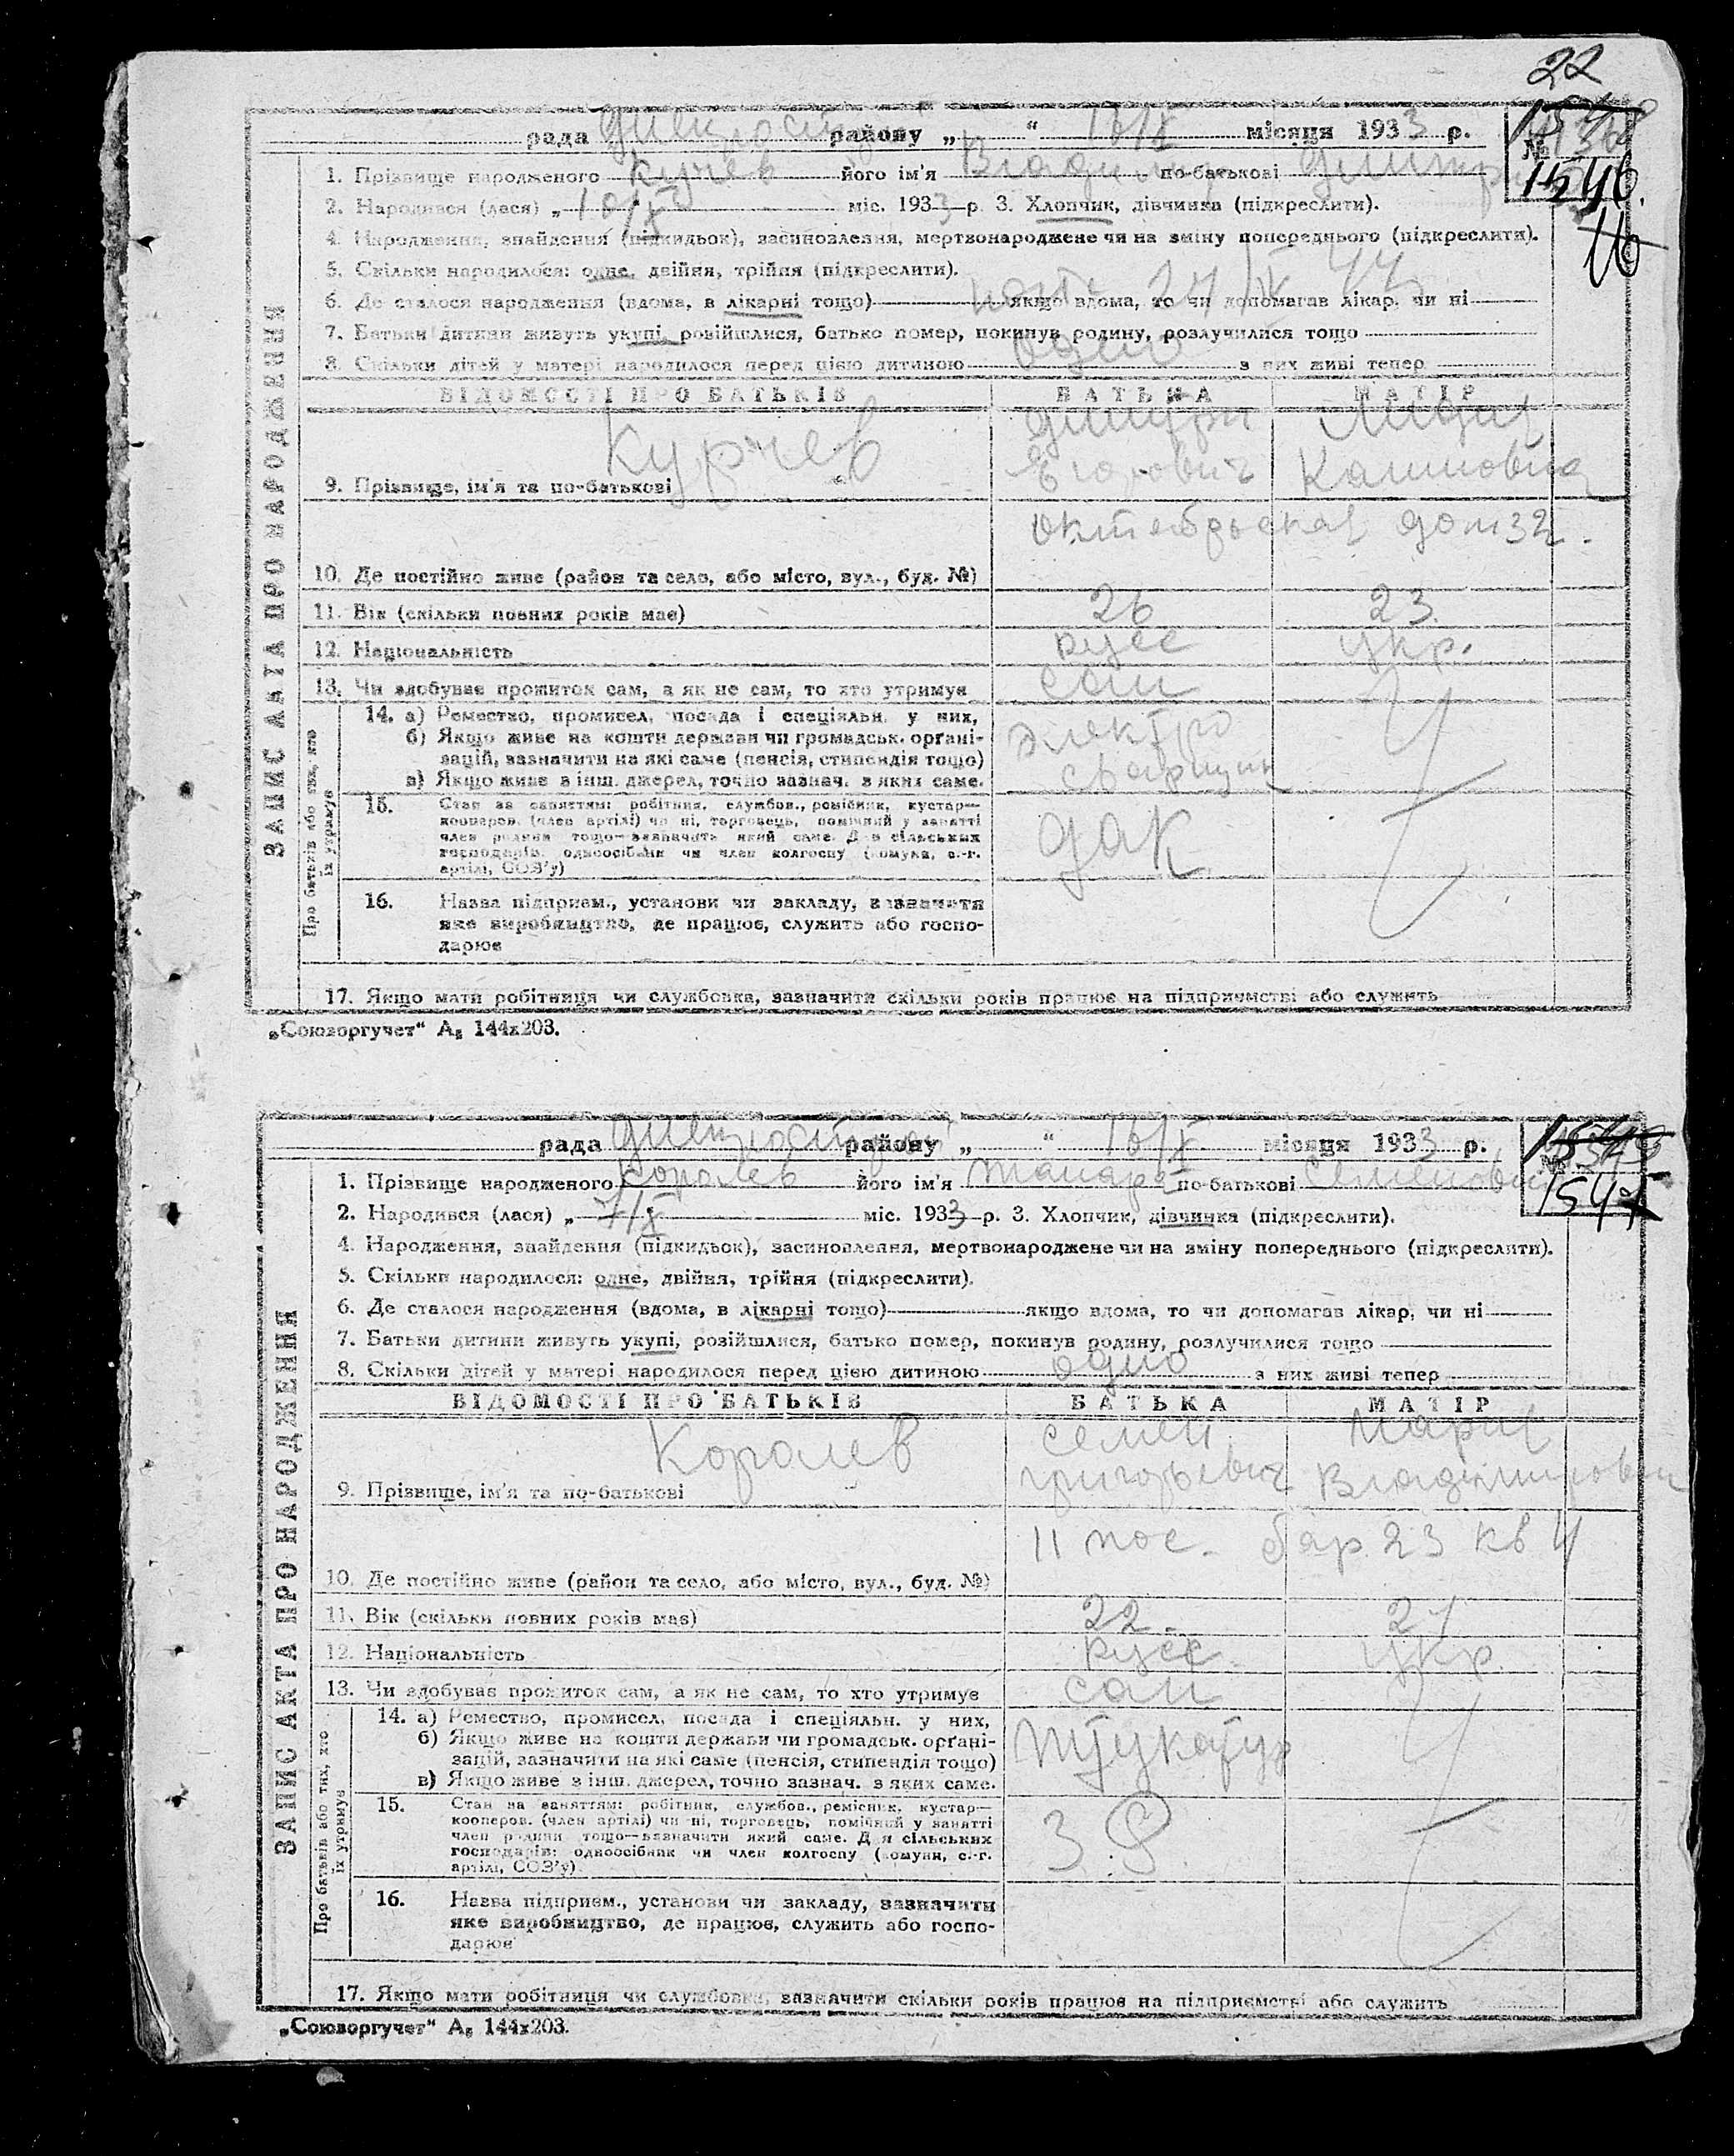 22
рада Днепрострой району „ “ 16/X місяця 1933 р.
№
1546.
16
1. Прізвище народженого Курчев його ім'я Владимир по-батькові Дмитр
2. Народився (лася) „ 10/X міс. 1933 р. 3. Хлопчик, дівчинка (підкреслити).
4. Народження, знайдення (підкидьок), засиновлення, мертвонароджене чи на зміну попереднього (підкреслити).
5. Скільки народилося: одне, двійня, трійня (підкреслити).
6. Де сталося народження (вдома, в лікарні тощо) якщо вдома, то чи допомагав лікар, чи ні
7. Батьки дитини живуть укупі, розійшлися, батько помер, покинув родину, розлучилися тощо
8. Скільки дітей у матері народилося перед цією дитиною одно з них живі тепер
ВІДОМОСТІ ПРО БАТЬКІВ БАТЬКА МАТІР
Курчев Дмитри Лидия
9. Прізвище, ім'я та по-батькові Калиновна
Октябрьская дом 32.
10. Де постійно живе (район та село, або місто, вул., буд. №)
11. Вік (скільки повних років має) 26 23
12. Національність русс укр.
13. Чи здобуває прожиток сам, а як не сам, то хто утримує сам
14. а) Ремество, промисел, посада і спеціяльн. у них,
б) Якщо живе на кошти держави чи громадськ. органі-
зацій, зазначити на які саме (пенсія, стипендія тощо)
в) Якщо живе з інш. джерел, точно зазнач. з яких саме.
Электро
сварщик
15. Стан за заняттям: робітник, службов., ремісник, кустар—
кооперов. (член артілі) чи ні, торговець, помічний у занятті
член родини тощо—зазначить який саме. Для сільських
господарів: одноосібник чи член колгоспу (комуни, с.-г.
артілі, СОЗ'у)
ДАК
16. Назва підприєм., установи чи закладу, зазначити
яке виробництво, де працює, служить або госпо-
дарює
17. Якщо мати робітниця чи службовка, зазначити скільки років працює на підприємстві або служить
„Союзоргучет“ А₅ 144х203.
ЗАПИС АКТА ПРО НАРОДЖЕННЯ
Про батьків або тих, хто
їх утримує
рада Днепрострой району „ “ 16/X місяця 1933 р.
№
1547
1. Прізвище народженого Королев його ім'я Тамара по-батькові Семеновна
2. Народився (лася) „ 7/X міс. 1933 р. 3. Хлопчик, дівчинка (підкреслити).
4. Народження, знайдення (підкидьок), засиновлення, мертвонароджене чи на зміну попереднього (підкреслити).
5. Скільки народилося: одне, двійня, трійня (підкреслити).
6. Де сталося народження (вдома, в лікарні тощо) якщо вдома, то чи допомагав лікар, чи ні
7. Батьки дитини живуть укупі, розійшлися, батько помер, покинув родину, розлучилися тощо
8. Скільки дітей у матері народилося перед цією дитиною одно з них живі тепер
ВІДОМОСТІ ПРО БАТЬКІВ БАТЬКА МАТІР
Королев Семен Мария
9. Прізвище, ім'я та по-батькові Григорьевич Владимировна
11 пос. бар. 23 кв 4
10. Де постійно живе (район та село, або місто, вул., буд. №)
11. Вік (скільки повних років має) 22 21
12. Національність русс. укр.
13. Чи здобуває прожиток сам, а як не сам, то хто утримує сам
14. а) Ремество, промисел, посада і спеціяльн. у них,
б) Якщо живе на кошти держави чи громадськ. органі-
зацій, зазначити на які саме (пенсія, стипендія тощо)
в) Якщо живе з інш. джерел, точно зазнач. з яких саме.
Штукатур
15. Стан за заняттям: робітник, службов., ремісник, кустар—
кооперов. (член артілі) чи ні, торговець, помічний у занятті
член родини тощо—зазначити який саме. Для сільських
господарів: одноосібник чи член колгоспу (комуни, с.-г.
артілі, СОЗ'у)
16. Назва підприєм., установи чи закладу, зазначити
яке виробництво, де працює, служить або госпо-
дарює
17. Якщо мати робітниця чи службовка, зазначити скільки років працює на підприємстві або служить
„Союзоргучет“ А₅ 144х203.
ЗАПИС АКТА ПРО НАРОДЖЕННЯ
Про батьків або тих, хто
їх утримує